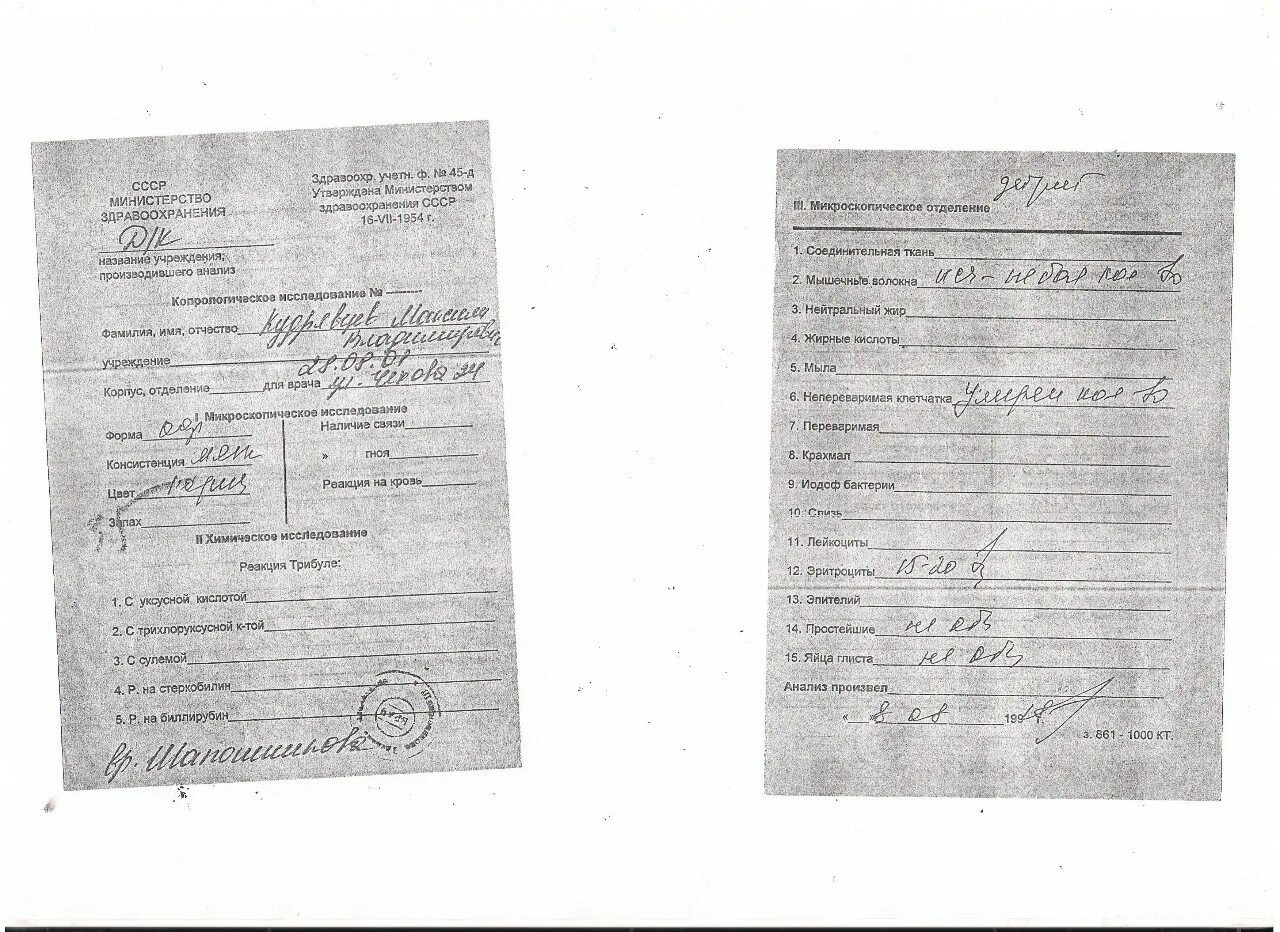 СССР
МИНИСТЕРСТВО
ЗДРАВООХРАНЕНИЯ
Д/К
название учреждения,
производившего анализ
Здравоохр. учетн. ф. № 45-д
Утверждена Министерством
здравоохранения СССР
16-VII-1954 г.
Копрологическое исследование №
Фамилия, имя, отчество Кудрявцев Максим
Владимирович
учреждение 28.08.01
Корпус, отделение для врача ул. Чехова 24
I Микроскопическое исследование
Форма
Наличие связи
Консистенция мягк
» гноя
Цвет корич
Реакция на кровь
Запах
II Химическое исследование
Реакция Трибуле:
1. С уксусной кислотой
2. С трихлоруксусной к-той
3. С сулемой
4. Р. на стеркобилин
5. Р. на биллирубин
вр. Шапошникова
детрит
III. Микроскопическое отделение
1. Соединительная ткань
2. Мышечные волокна небол кол во
3. Нейтральный жир
4. Жирные кислоты
5. Мыла
6. Непереваримая клетчатка умерен кол во
7. Переваримая
8. Крахмал
9. Иодоф бактерии
10. Слизь
11. Лейкоциты
12. Эритроциты 15-20
13. Эпителий
14. Простейшие не обн
15. Яйца глиста не обн
Анализ произвел
« 8 08 199 г.
з. 861 - 1000 КТ.